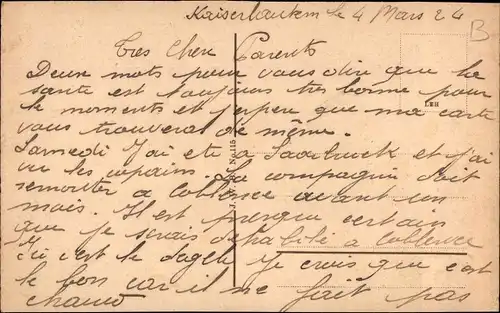 Kaiserlautern le 4 Mars 24
B
Tres Chere Parents
Deux mots pour vous dire que la
sante est toujours très bonne pour
le moments et j'espere que ma carte
LEH
vous trouveral de même.
Samedi J'ai ete a Saarbruck et j'ai
vu les copains. La compagnie doit
remonter a Coblence avant un
mois. Il est presque certain
que je serais a Coblence
Ici c'est le Je crois que c'est
le bon car il ne fait pas
chaud
No. 115